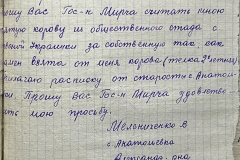 ошу Вас Гос-н Мирга считать мною
ятую корову из общественного стада с
вной Украинки за собственную так как
мен взята от меня корова (телка 2ᵘ летняя)
илагаю расписку от старосты с Анатол
ки. Прошу Вас Гос-н Мирга удовлетво
ить мою просьбу.
Мельниченко В
с. Анатолевка